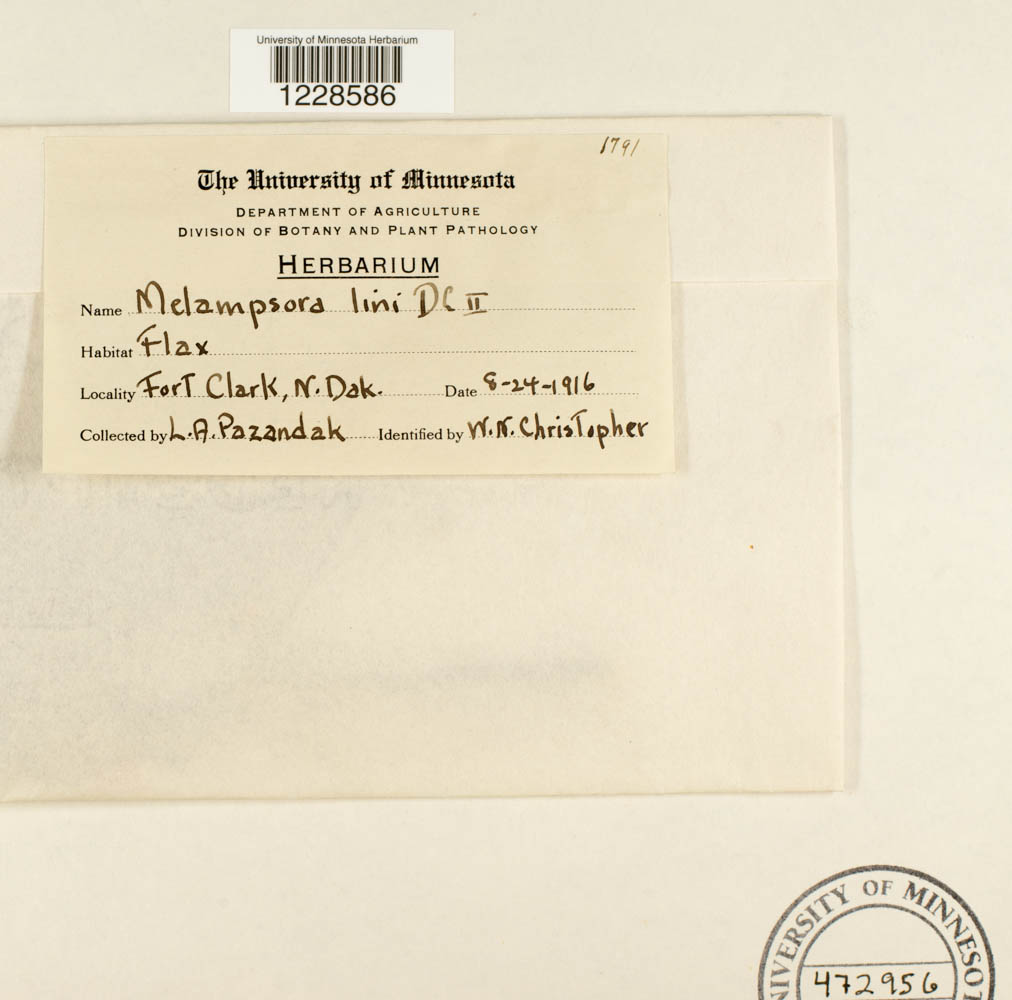 University of Minnesota Herbarium
1228586
1791
The University of Minnesota
DEPARTMENT OF AGRICULTURE
DIVISION OF BOTANY AND PLANT PATHOLOGY
HERBARIUM
Name Melampsora lini DC II
Habitat Flax
Locality Fort Clark, N. Dak. Date 8-24-1916
Collected by L.A. Pazandak Identified by W.N. Christopher
NIVERSITY OF MINNESOT
472956